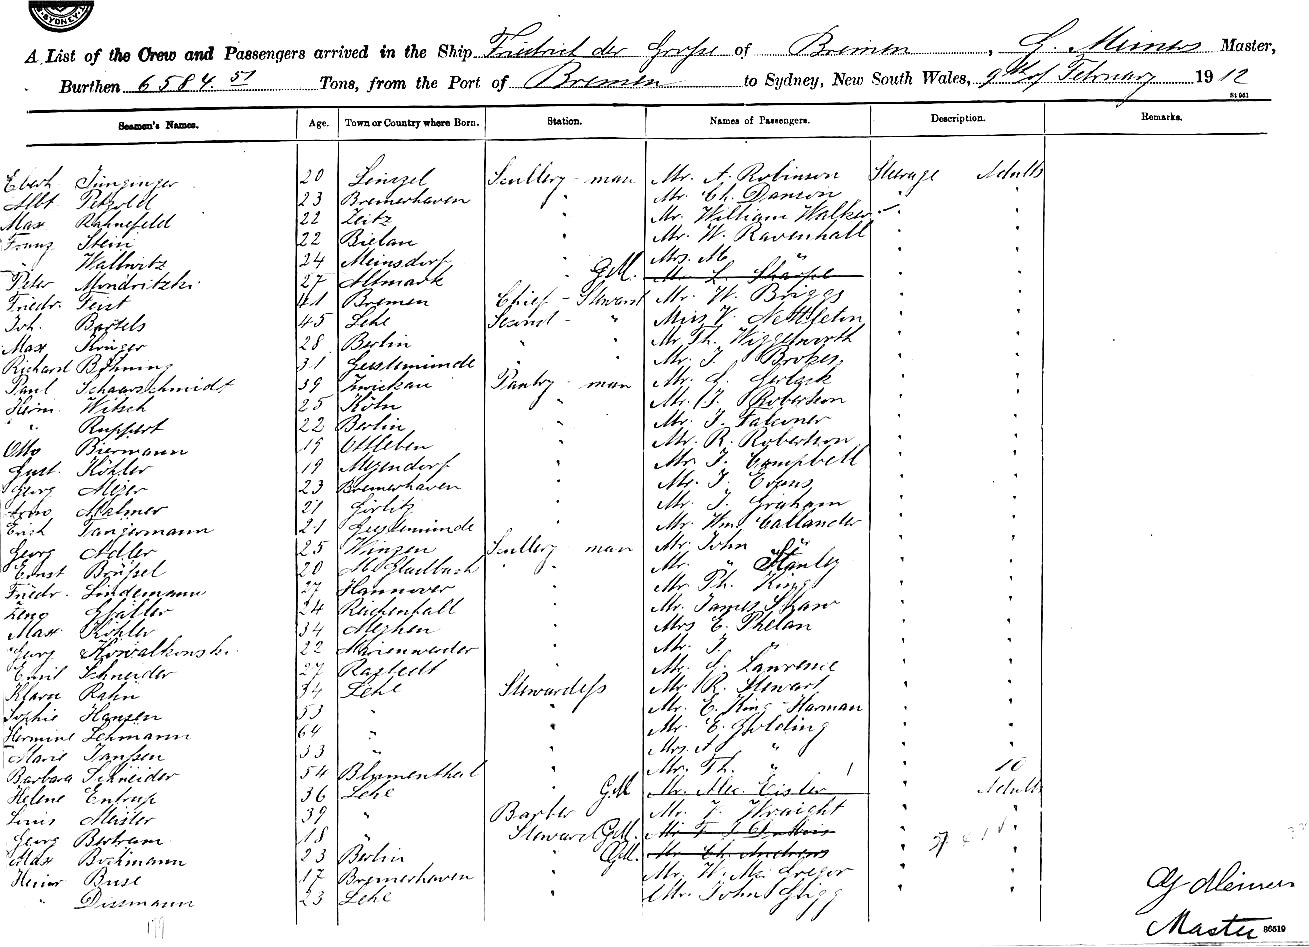 SYDNEY
A List of the Crew and Passengers arrived in the Ship Friedrich der Große of Bremen, G. Meiners Master,
Burthen 6584.51 Tons, from the Port of Bremen to Sydney, New South Wales, 9th of February 1912
St 961
Seamen's Names. Age. Town or Country where Born. Station. Names of Passengers. Description. Remarks.
20 Scullery - man Mr. A. Robinson Steerage Adults
Petzold 23 Bremerhaven " Mr. Ch. Danson " "
Max Rahnefeld 22 Zeitz " Mr. William Walker " "
Franz Stein 22 Bielau " Mr. W. Ravenhall " "
" Wallwitz 24 Meinsdorf " Mrs. M. " " "
Peter Mondritzki 27 Altmark " G.M. Mr. L. Sharpe " "
Friedr. Feist 41 Bremen Chief - Steward Mr. W. Briggs " "
Joh. Bartels 45 Lehe Second - " Miss V. Nettlefin " "
Max Krüger 28 Berlin " " Mr. Th. Wigglesworth " "
Richard Böhning 31 Geestemünde " " Mr. J. " "
Paul Schaarschmidt 39 Zwickau Pantry - man Mr. G. " "
Heinr. Witsch 25 Köln " Mr. J. Robertson " "
" Ruppert 22 Berlin " Mr. J. Falconer " "
Otto Biermann 19 Ottleben " Mr. R. Robertson " "
Gust. Köhler 19 " Mr. J. Campbell " "
Georg Meier 23 Bremerhaven " Mr. J. Evans " "
Malmer 21 Görlitz " Mr. J. Graham " "
Erich Tangermann 21 Geestemünde " Mr. Wm. Callander " "
Georg Adler 25 Winzen Scullery - man Mr. John " " "
Ernst Brüßel 20 M. Gladbach " Mr. " Stanley " "
Friedr. Lindemann 27 Hannover " Mr. Th. King " "
Zeno Gfäller 24 Reichenhall " Mr. James Shaw " "
Max Köhler 34 " Mrs E. Phelan " "
Georg Kowalkowski 22 Marienwerder " Mr. J. " " "
Emil Schneider 27 Rastedt " Mr. G. Lawrence " "
Klara Rahn 34 Lehe Stewardeß Mr. R. Stewart " "
Sophie Hansen 53 " " Mr. E. King-Harman " "
Hermine Lehmann 64 " " Mr. E. Golding " "
Marie Janßen 33 " " Mrs. A. " " "
Barbara Schneider 54 Blumenthal " Mr. Th. " " 10
Helene Entrup 36 Lehe " G.M. Mr. Alec. Eisler " Adults
Louis Meister 39 " Barber Mr. J. Wraight "
Georg Bertram 18 " Steward G.M. Mr.
Max Buchmann 23 Berlin " G.M. Mr. Ch. Andrews "
Heinr. Buse 17 Bremerhaven " Mr. W. Mc Gregor "
" Dissmann 23 Lehe " Mr. John Gligg "
G Meiners
Master
86519
179